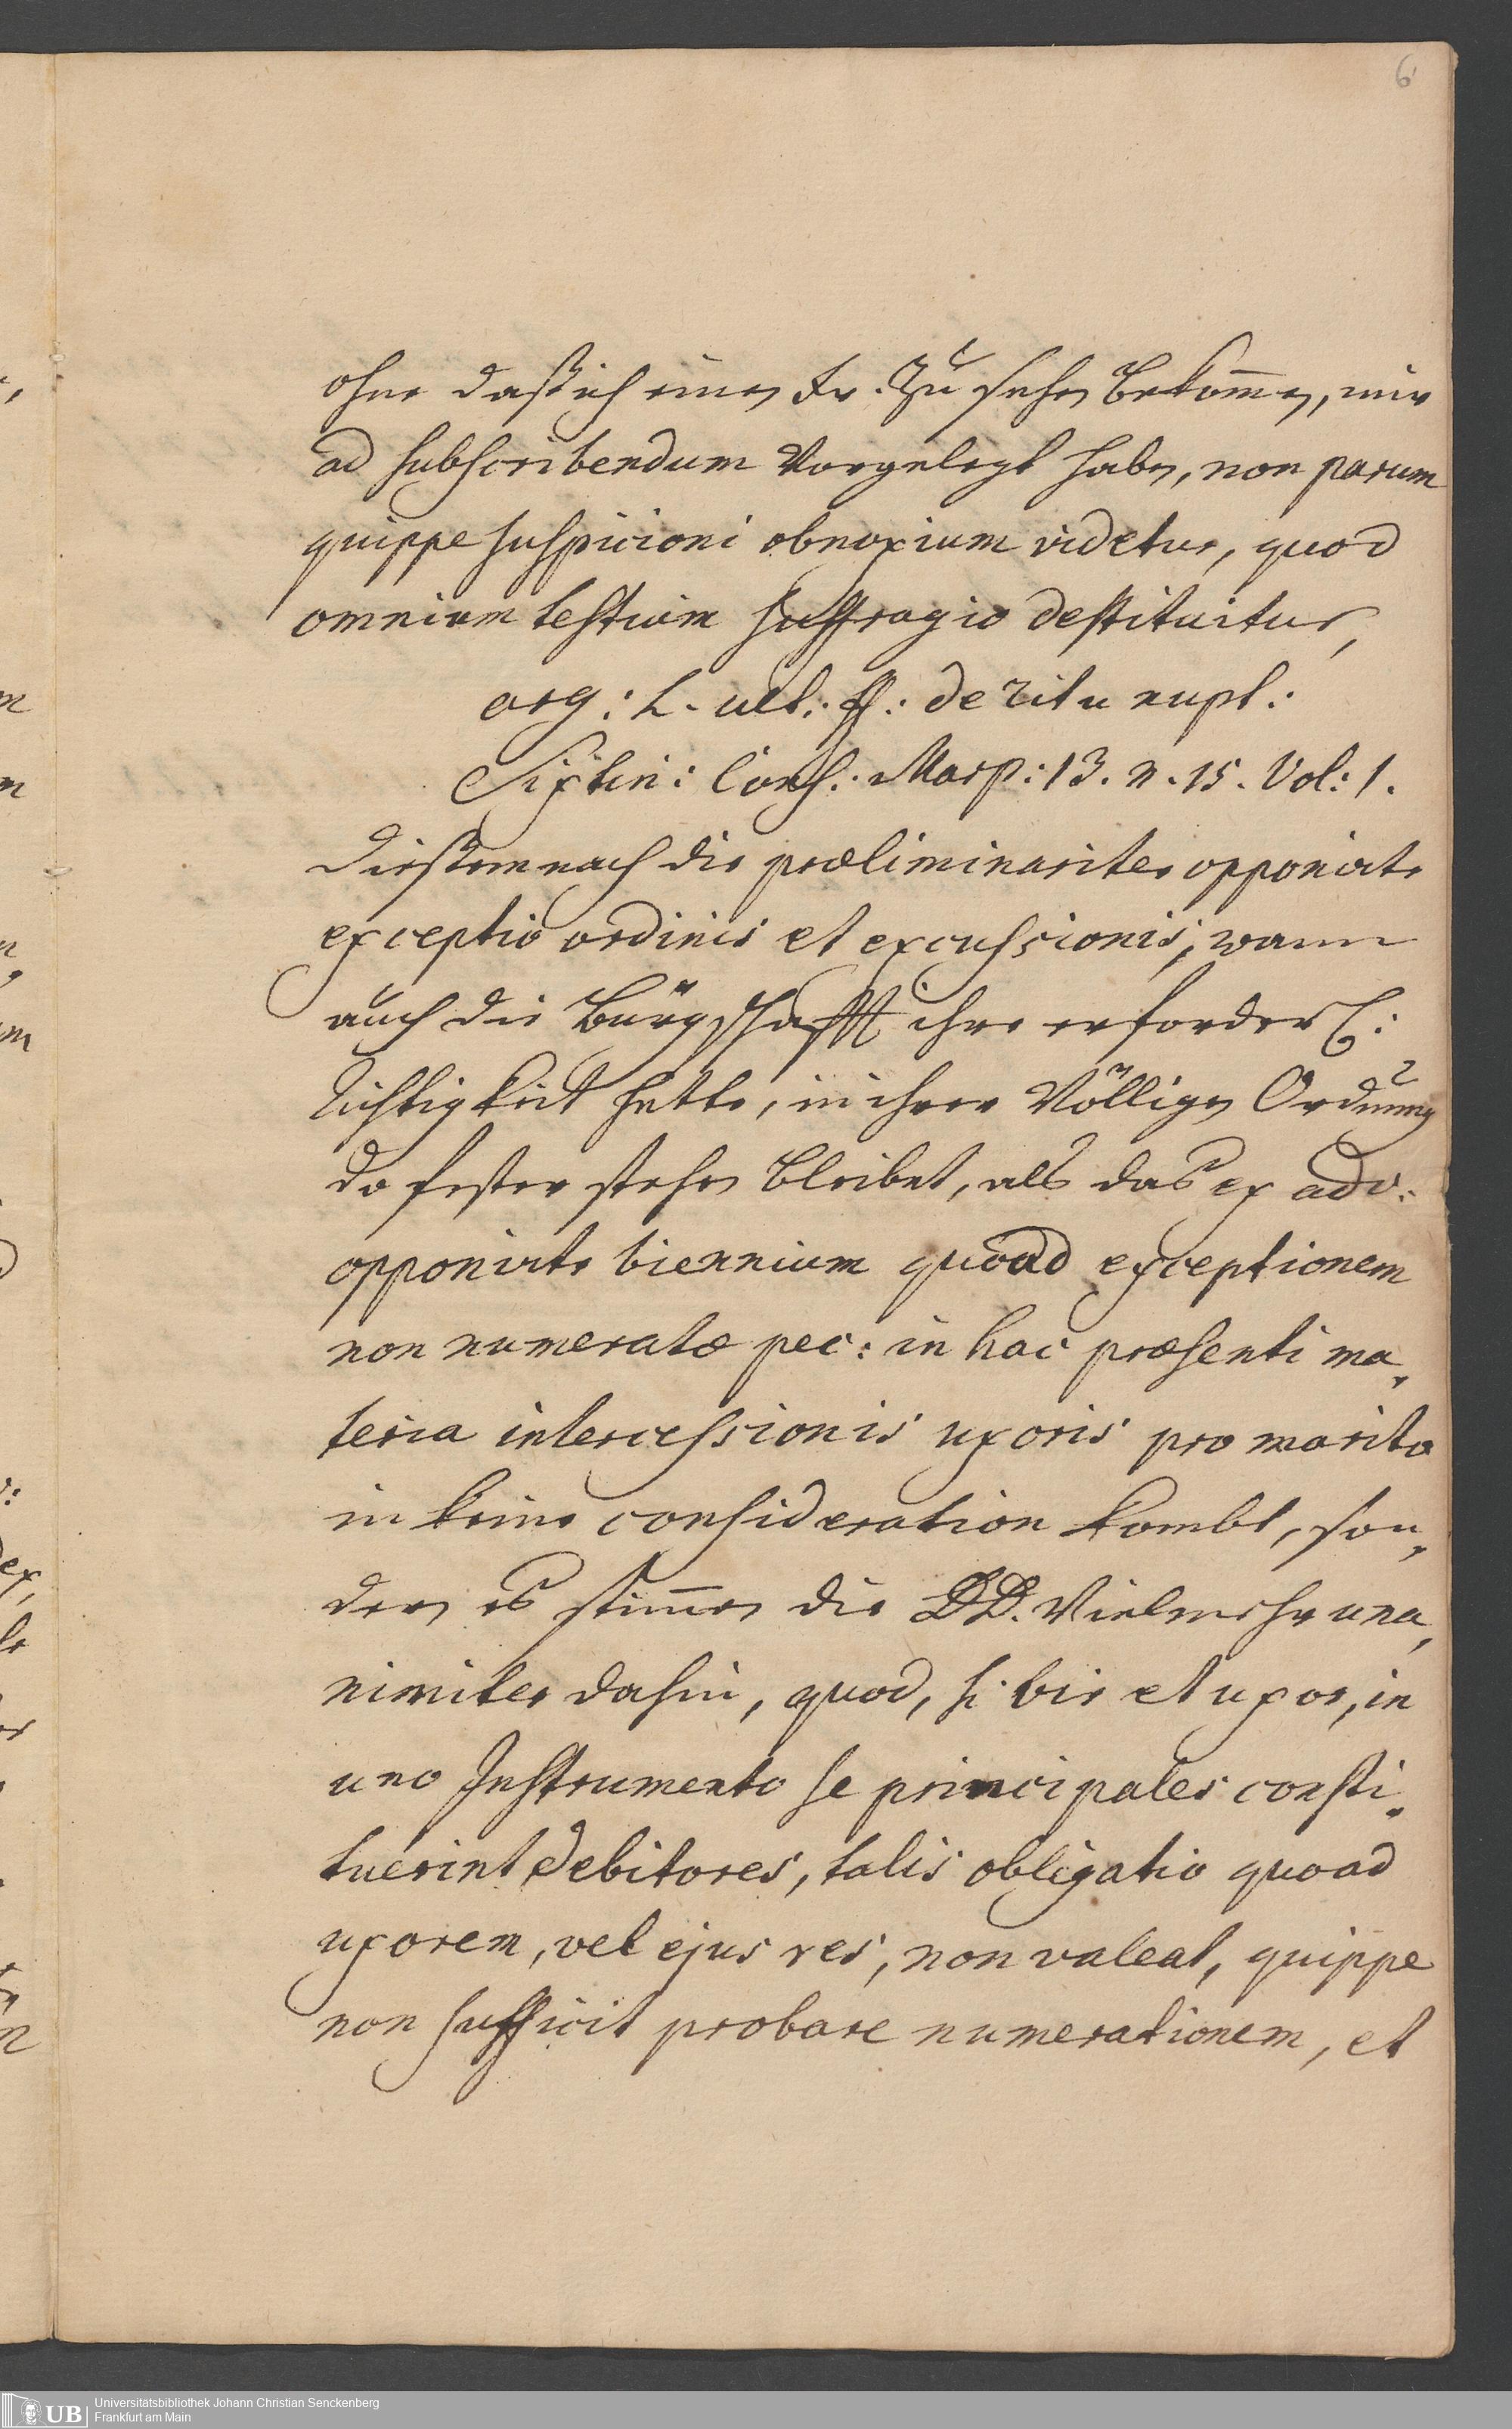 6
ohne daß ich einen kr. Zu sehen bekom̄en, mir
ad subscribendum Vorgelegt haben, non parum
quippe suspicioni obnoxium videtur, quod
omnium testium suffragio destituitur,
arg: L. ult: ff: de ritu nupt:
Sixtin: Cons: Marp: 13. n. 15. Vol: 1.
Diesemnach die præliminariter opponirte
exceptio ordinis et excussionis, wann
auch die Bürgschafft ihre erforderl:
Richtigkeit hette, in ihrer Völligen Ordnung
do fester stehen bleibet, als das ex adv:
opponirte biennium quoad exceptionem
non numeratæ pec: in hac præsenti ma,
teria intercessionis uxoris pro marito
in keine consideration kombt, son,
dern es stim̄en die DD. Vielmehr una,
nimiter dahin, quod, si vir et uxor, in
uno Instrumento se principales consti,
tuerint debitores, talis obligatio quoad
uxorem, vel ejus res, non valeat, quippe
non sufficit probare numerationem, et
UB
Universitätsbibliothek Johann Christian Senckenberg
Frankfurt am Main